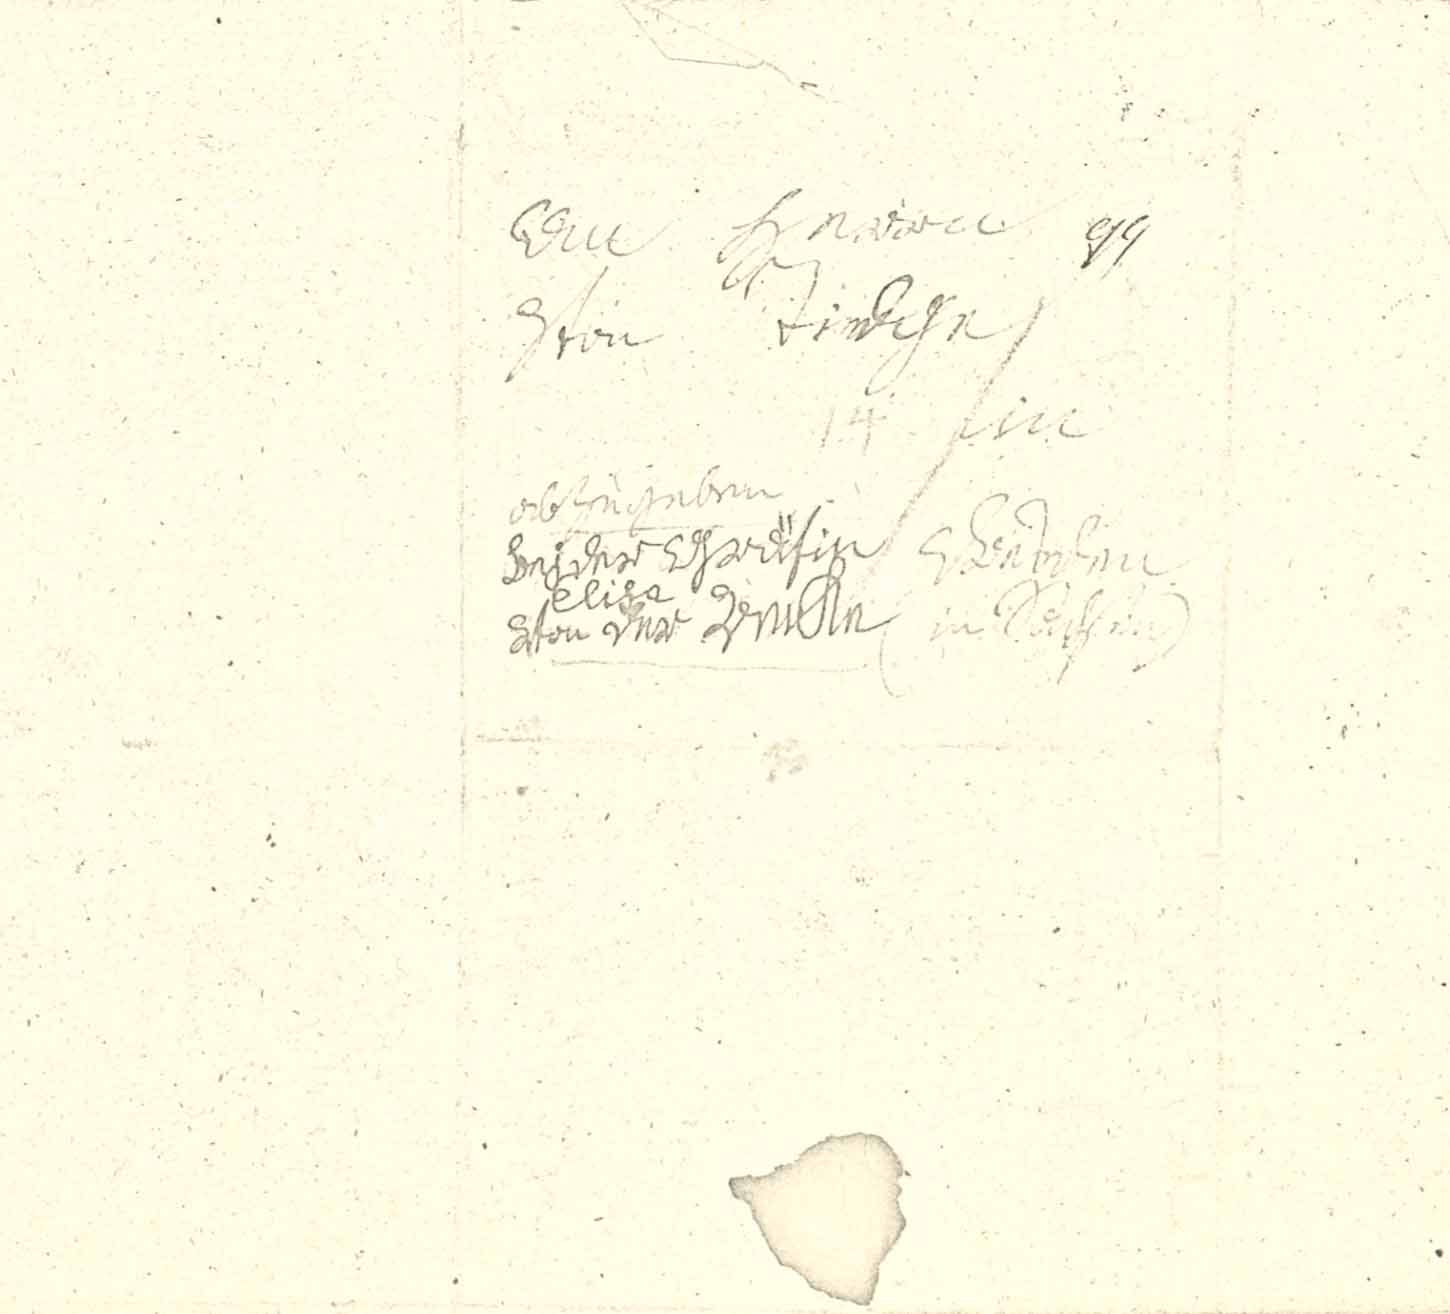 Den Herren 99
Von Tiedge
14 in
abzugeben
bei der Gräfin Dresden
Elisa
Von der Recke (in Sachsen)